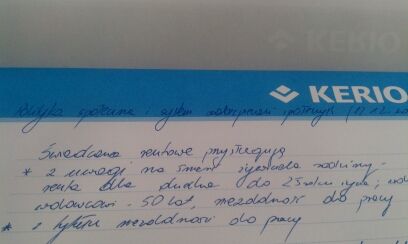 KERIO
KERIO
Polityka społeczna i system zabezpieczeń społecznych (17.12.
Świadczenia rentowe przysługują
* z uwagi na śmierć żywiciela rodziny -
renta dla dziecka do 25 roku życia,
wdowa - 50 lat, niezdolność do pracy
* z tytułu niezdolności do pracy